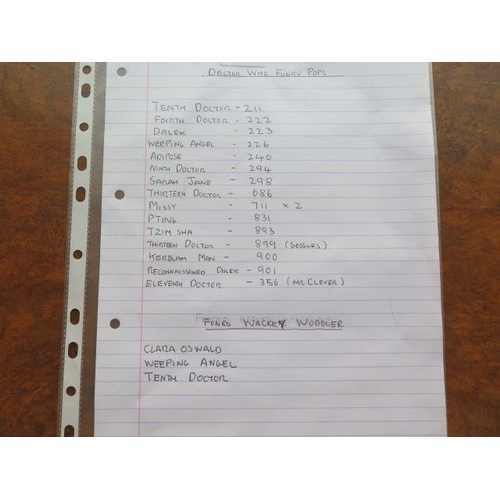 DOCTOR WHO FUNKO POPS
TENTH DOCTOR - 211
FOURTH DOCTOR - 222
DALEK - 223
WEEPING ANGEL - 226
ADIPOSE - 240
NINTH DOCTOR - 294
SARAH JANE - 298
THIRTEEN DOCTOR - 686
MISSY - 711 x 2
PTING - 831
TZIM SHA - 893
THIRTEEN DOCTOR - 899 (GOGGLES)
KERBLAM MAN - 900
RECONNAISSANCE DALEK - 901
ELEVENTH DOCTOR - 356 (MR CLEVER)
FUNKO WACKEY WOBBLER
CLARA OSWALD
WEEPING ANGEL
TENTH DOCTOR